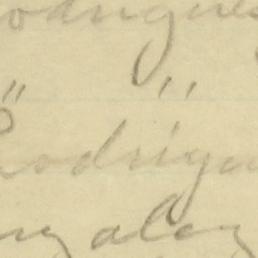 odrigues
" "
Rodrigu
nzalez